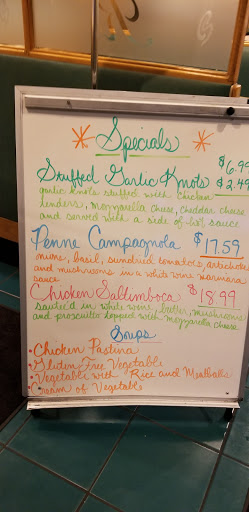 Specials
Stuffed Garlic Knots $6.99
$2.49
garlic knots stuffed with chicken
tenders, mozzarella cheese, cheddar cheese
and served with a side of sauce
Penne Campagnola $17.59
basil, sundried tomatoes, artichoke
and mushrooms in a white wine marinara
sauce
Chicken Saltimboca $18.99
sauteéd in white wine, butter, mushrooms
and prosciutto topped with mozzarella cheese
Soups
• Chicken Pastina
• Gluten Free Vegetable
• Vegetable with Rice and Meatballs
• Cream of Vegetable